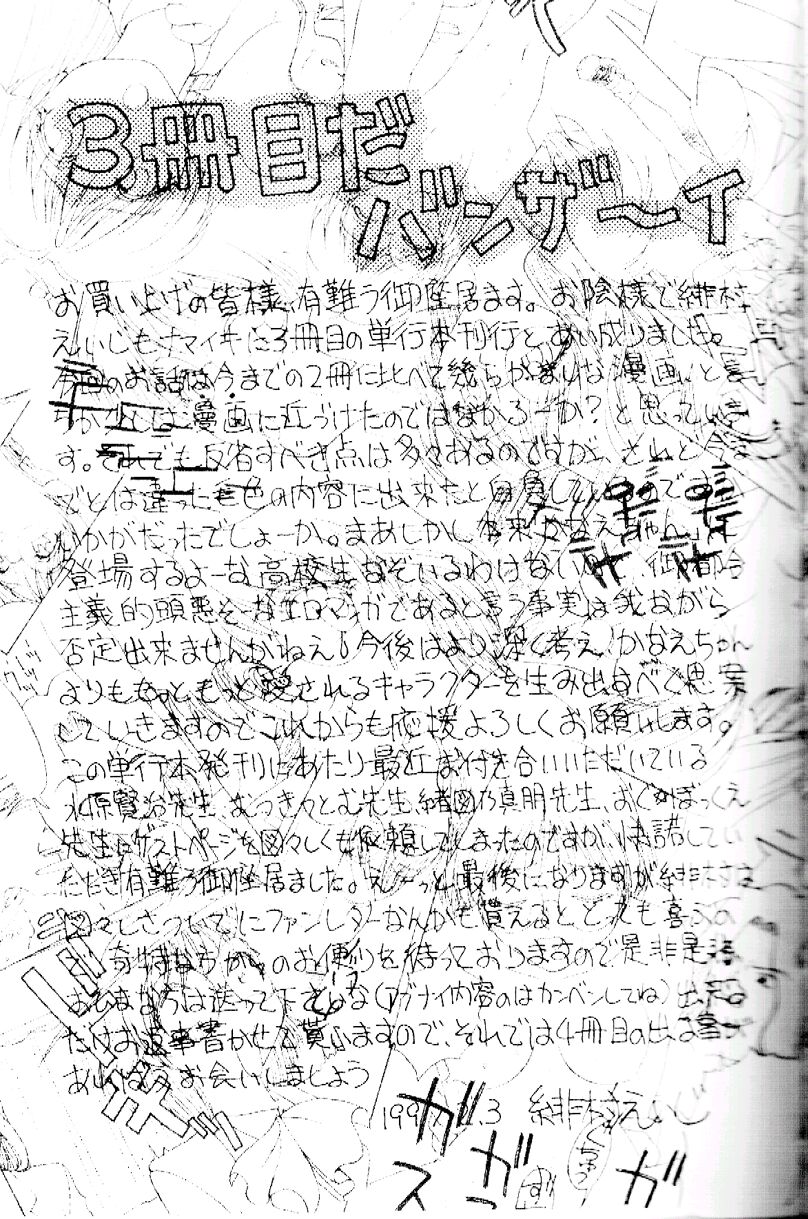 3冊目だ
バンザ〜イ
お買い上げの皆様、有難う御座居ます。お陰様で緋村
えいじもナマイキに3冊目の単行本刊行とあい成りました。
今回のお話は今までの2冊に比べて幾らかまりな漫画、と言
漫画に近づけたのではなかろーか?と思っていま
す。それでも反省すべき点は多々あるのですが、されど今ま
でとは違った色の内容に出来たと自負している
いかがだったでしょーか。まあしかし本来かなえちゃんに
登場するよーな高校生なぞいるわけない 御都合
主義的頭悪そーなエロマンガであると言う事実は我ながら
否定出来ませんがねえ。今後はより深く考え、かなえちゃん
よりももっともっと愛されるキャラクターを生み出すべく思案
していきますのでこれからも応援よろしくお願いします。
この単行本発刊にあたり最近お付き合いいただいている
水原賢治先生、むつきつとむ先生、緒図乃真朋先生、おぐぼっくえ
先生にゲストページを図々しくも依頼してしまったのですが、快諾してい
ただき有難う御座居ました。え〜っと最後になりますが緋村は
図々しさついでにファンレターなんかも貰えるととても喜ぶの
で、奇特な方からのお便りを待っておりますので是非是非
おひまな方は送って下さいな(アブナイ内容のはカンベンしてね)出来る
だけお返事書かせて貰いますので、それでは4冊目の出る事が
あればまたお会いしましょう
緋村えいじ
ガ
ガ
ス
ガ